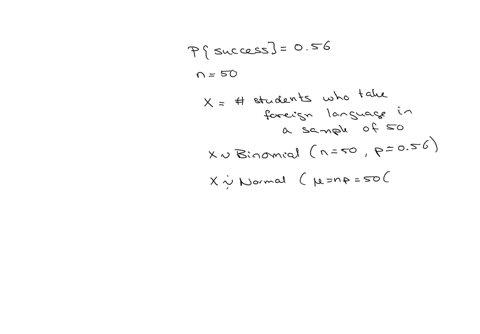 P{success} = 0.56
n = 50
X = # students who take
foreign language in
a sample of 50
X ~ Binomial (n=50, p=0.56)
X ~̇ Normal (μ=np=50(